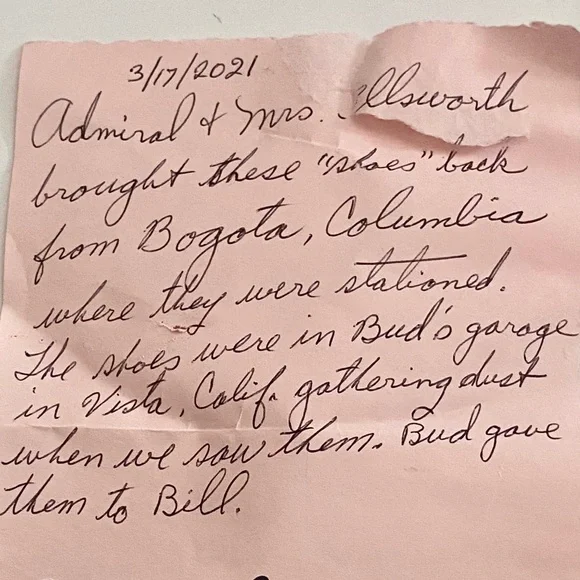 3/17/2021
Admiral & Mrs. Ellsworth
brought these "shoes" back
from Bogota, Columbia
where they were stationed.
The shoes were in Bud's garage
in Vista, Calif. gathering dust
when we saw them. Bud gave
them to Bill.